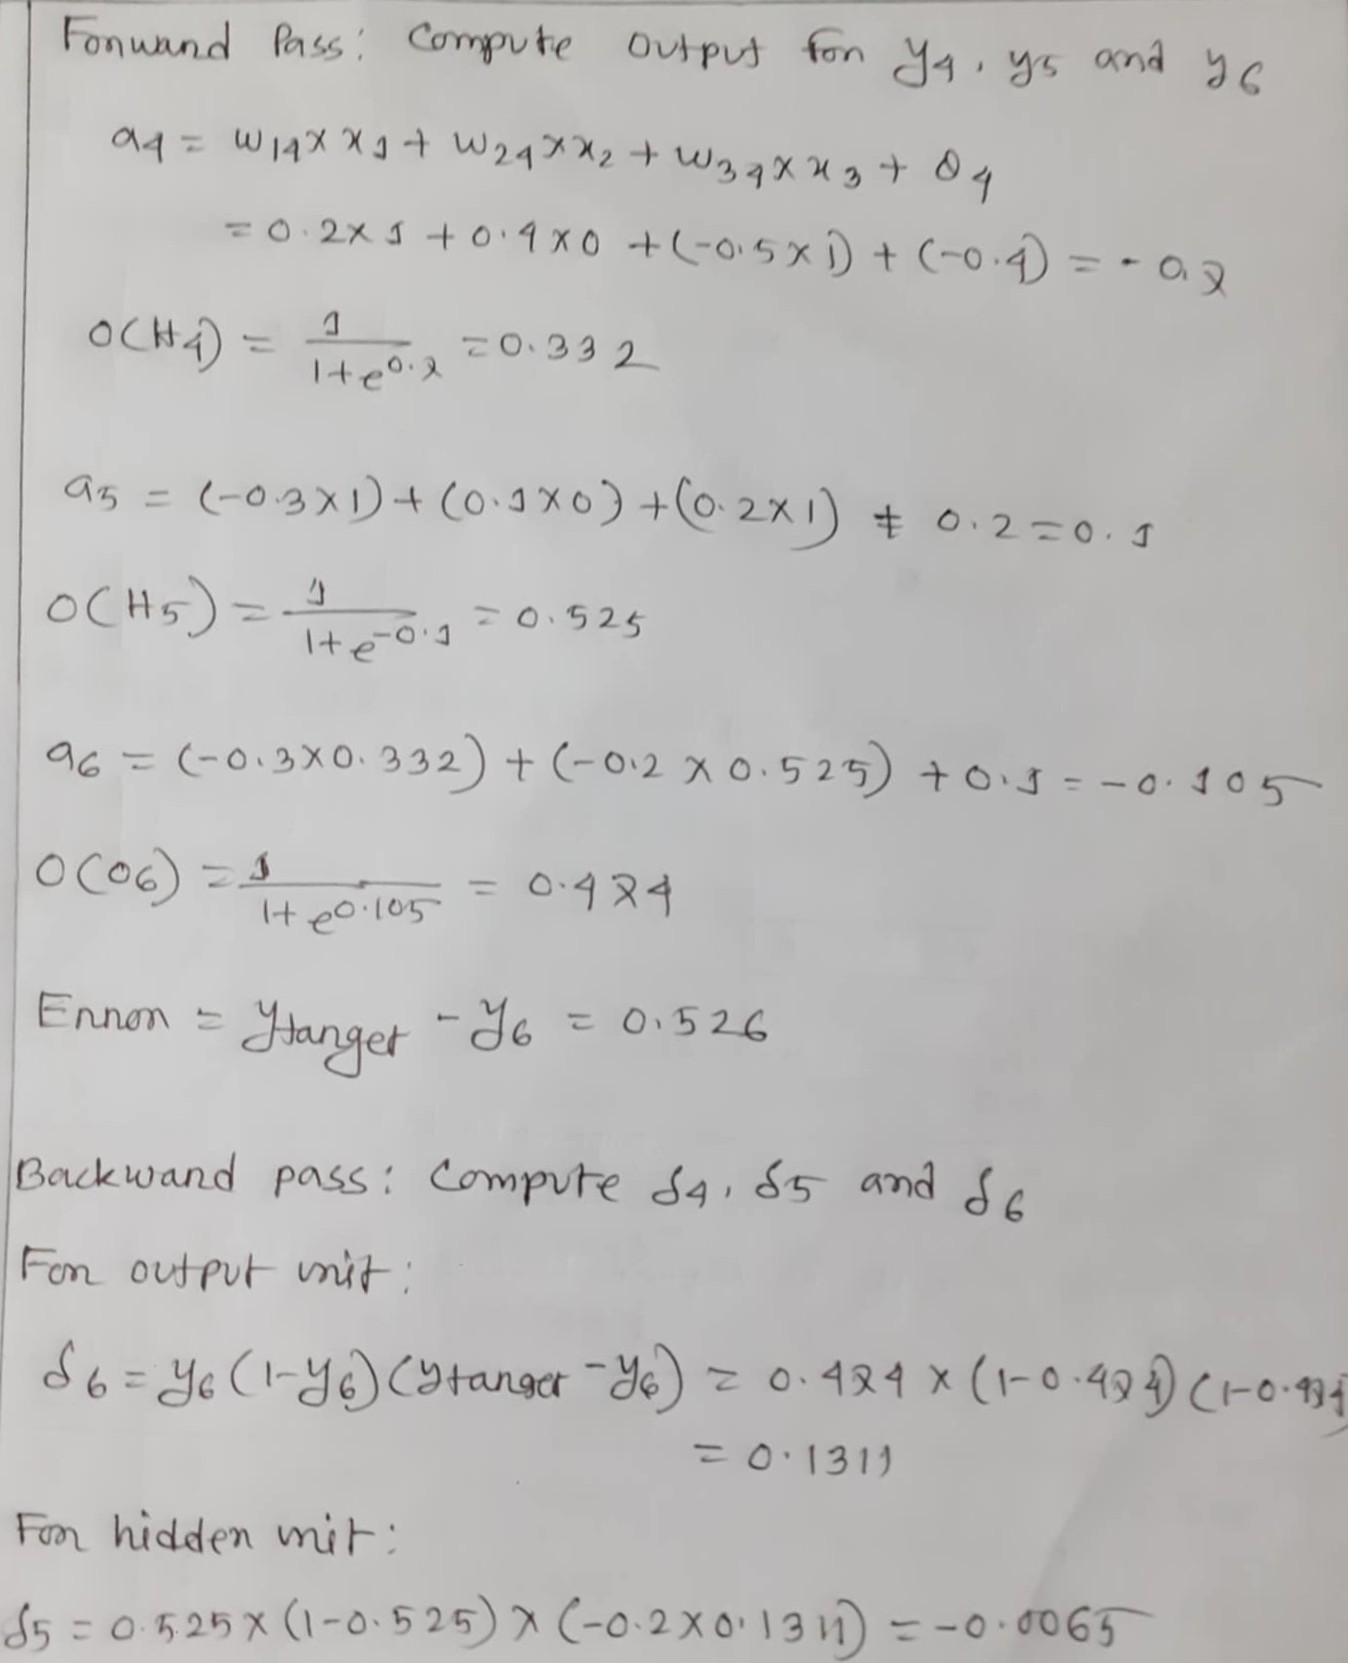 Forward Pass: Compute output for y4, y5 and y6
a4 = w14 x x1 + w24 x x2 + w34 x x3 + θ4
= 0.2 x 1 + 0.4 x 0 + (-0.5 x 1) + (-0.4) = -0.7
O(H4) = 1/(1+e^0.7) = 0.332
a5 = (-0.3 x 1) + (0.1 x 0) + (0.2 x 1) + 0.2 = 0.1
O(H5) = 1/(1+e^-0.1) = 0.525
a6 = (-0.3 x 0.332) + (-0.2 x 0.525) + 0.1 = -0.105
O(O6) = 1/(1+e^0.105) = 0.474
Error = ytarget - y6 = 0.526
Backward pass: Compute δ4, δ5 and δ6
For output unit:
δ6 = y6 (1-y6) (ytarget - y6) = 0.474 x (1-0.474) (1-0.474)
= 0.1311
For hidden unit:
δ5 = 0.525 x (1-0.525) x (-0.2 x 0.1311) = -0.0065